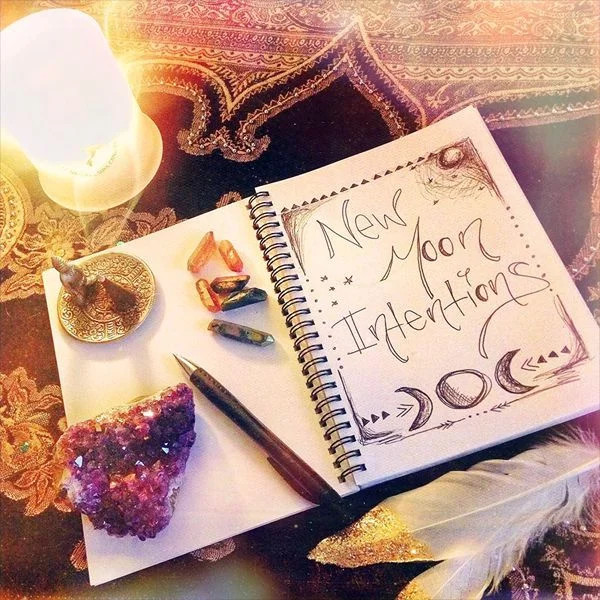 New
Moon
Intentions